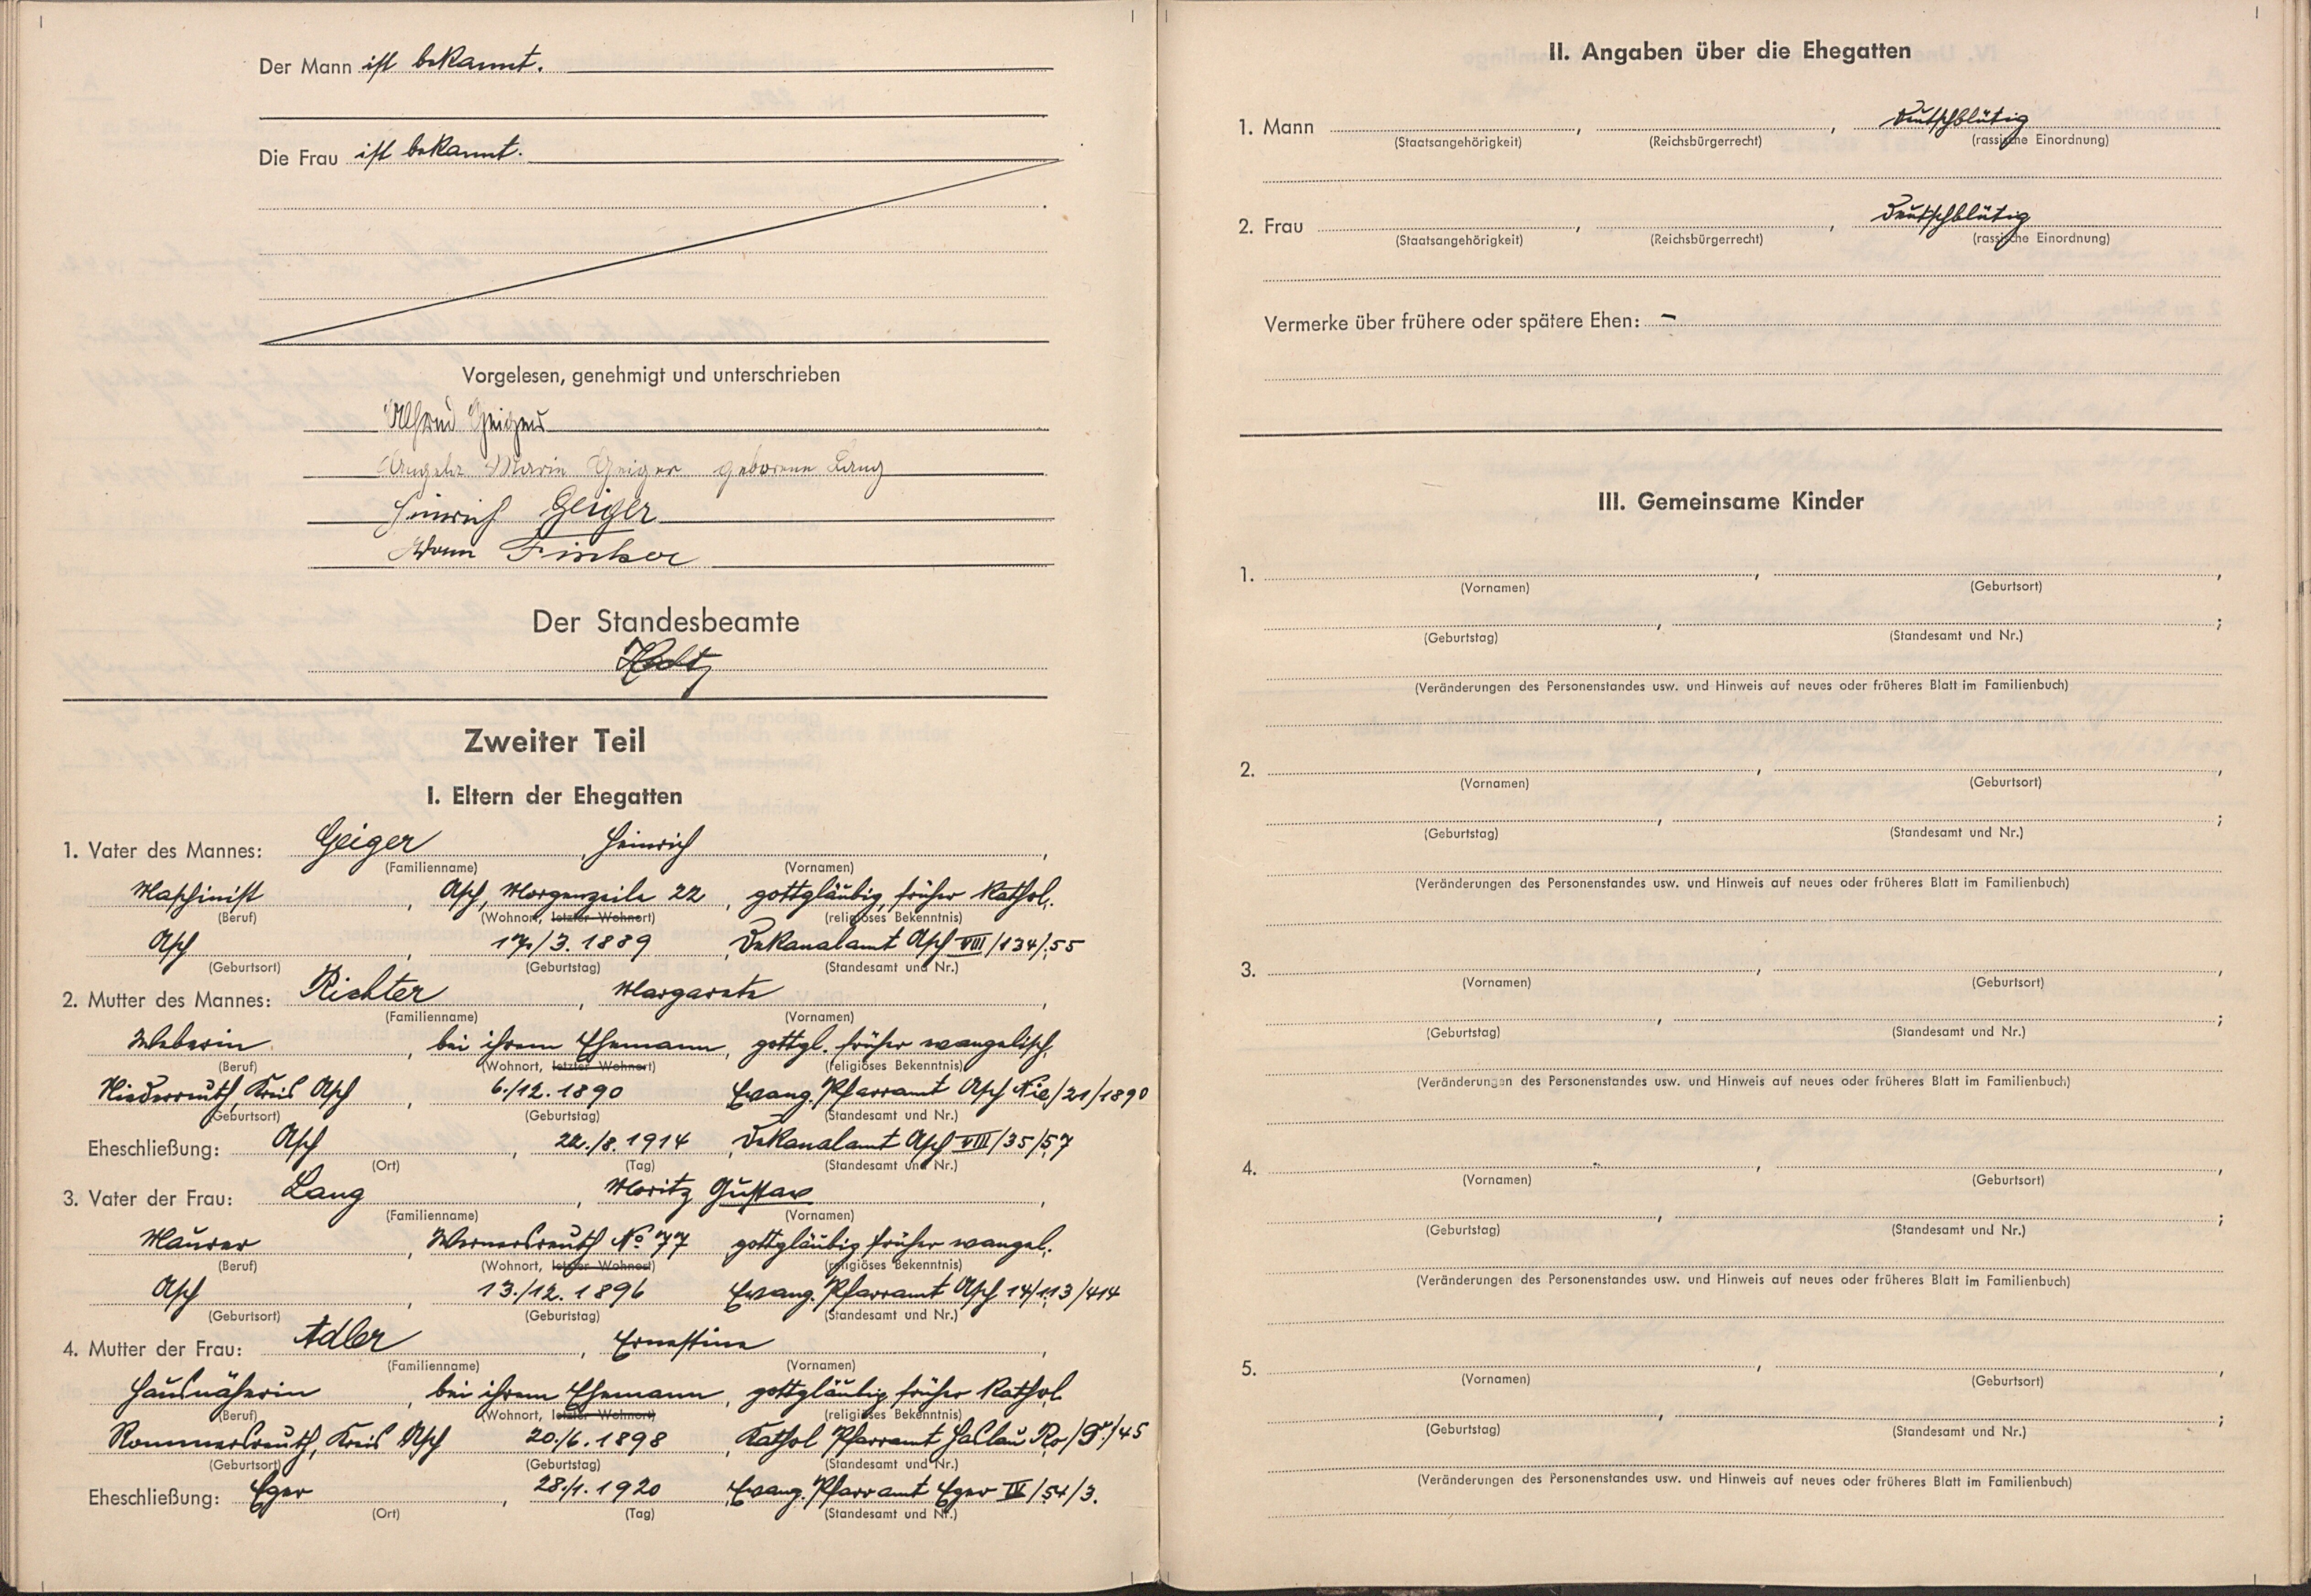 Der Mann ist bekannt.
Die Frau ist bekannt.
Vorgelesen, genehmigt und unterschrieben
Alfred Geiger
Angela Maria Geiger geborene Lang
Heinrich Geiger
Adam Fischer
Der Standesbeamte
Zweiter Teil
I. Eltern der Ehegatten
1. Vater des Mannes: Geiger Heinrich,
(Familienname) (Vornamen)
Maschinist, Asch, Morgenzeile 22, gottgläubig, früher kathol.
(Beruf) (Wohnort, letzter Wohnort) (religiöses Bekenntnis)
Asch, 17./3. 1889, Dekanalamt Asch VIII/134/55
(Geburtsort) (Geburtstag) (Standesamt und Nr.)
2. Mutter des Mannes: Richter, Margareta,
(Familienname) (Vornamen)
Weberin, bei ihrem Ehemann, gottgl. früher evangelisch,
(Beruf) (Wohnort, letzter Wohnort) (religiöses Bekenntnis)
Niederreuth, Kreis Asch, 6./12. 1890 Evang. Pfarramt Asch Nie/21/1890
(Geburtsort) (Geburtstag) (Standesamt und Nr.)
Eheschließung: Asch, 22./8. 1914, Dekanalamt Asch VIII/35/57
(Ort) (Tag) (Standesamt und Nr.)
3. Vater der Frau: Lang, Moritz Gustav,
(Familienname) (Vornamen)
Maurer, Wernersreuth No 77 gottgläubig früher evangel.
(Beruf) (Wohnort, letzter Wohnort) (religiöses Bekenntnis)
Asch, 13./12. 1896 Evang. Pfarramt Asch 14/113/414
(Geburtsort) (Geburtstag) (Standesamt und Nr.)
4. Mutter der Frau: Adler, Ernestine,
(Familienname) (Vornamen)
Hausnäherin, bei ihrem Ehemann, gottgläubig, früher kathol.
(Beruf) (Wohnort, letzter Wohnort) (religiöses Bekenntnis)
Rommersreuth, Kreis Asch 20./6. 1898, Kathol Pfarramt Haslau
(Geburtsort) (Geburtstag) (Standesamt und Nr.)
Eheschließung: Eger, 28./1. 1920 Evang. Pfarramt Eger IV/54/3.
(Ort) (Tag) (Standesamt und Nr.)
II. Angaben über die Ehegatten
1. Mann, , Deutschblütig
(Staatsangehörigkeit) (Reichsbürgerrecht) (rassische Einordnung)
2. Frau, , Deutschblütig
(Staatsangehörigkeit) (Reichsbürgerrecht) (rassische Einordnung)
Vermerke über frühere oder spätere Ehen: –
III. Gemeinsame Kinder
1. , ,
(Vornamen) (Geburtsort)
, ;
(Geburtstag) (Standesamt und Nr.)
(Veränderungen des Personenstandes usw. und Hinweis auf neues oder früheres Blatt im Familienbuch)
2. , ,
(Vornamen) (Geburtsort)
, ;
(Geburtstag) (Standesamt und Nr.)
(Veränderungen des Personenstandes usw. und Hinweis auf neues oder früheres Blatt im Familienbuch)
3. , ,
(Vornamen) (Geburtsort)
, ;
(Geburtstag) (Standesamt und Nr.)
(Veränderungen des Personenstandes usw. und Hinweis auf neues oder früheres Blatt im Familienbuch)
4. , ,
(Vornamen) (Geburtsort)
, ;
(Geburtstag) (Standesamt und Nr.)
(Veränderungen des Personenstandes usw. und Hinweis auf neues oder früheres Blatt im Familienbuch)
5. , ,
(Vornamen) (Geburtsort)
, ;
(Geburtstag) (Standesamt und Nr.)
(Veränderungen des Personenstandes usw. und Hinweis auf neues oder früheres Blatt im Familienbuch)